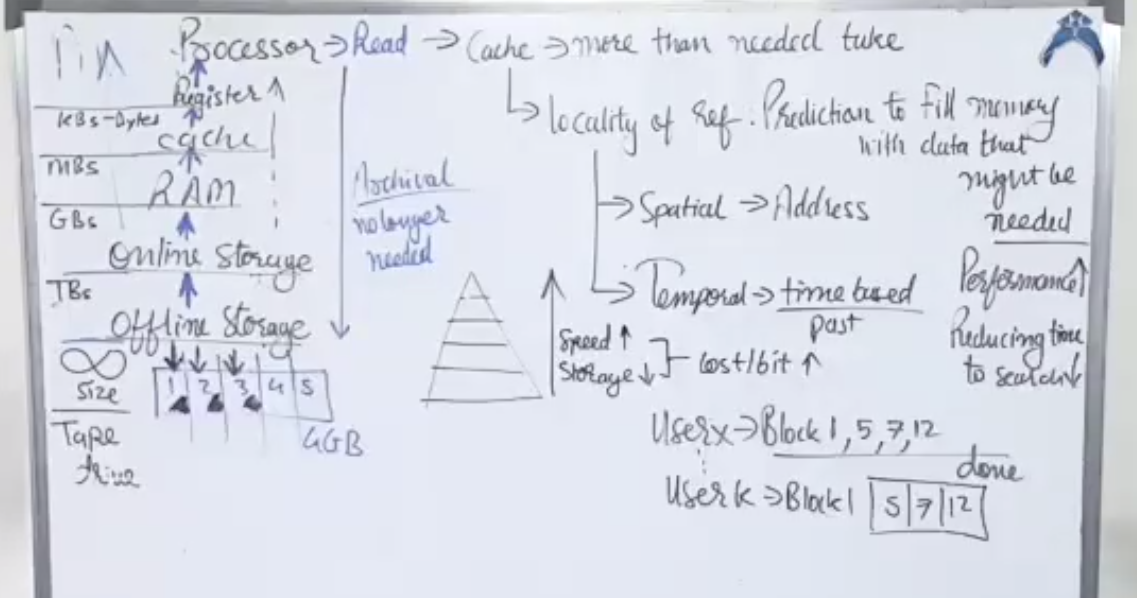 Processor → Read → Cache → more than needed take
Register
KBs-Bytes
cache
MBs
RAM
GBs
Online Storage
TBs
Offline Storage
∞
Size
1 2 3 4 5
4GB
Tape
drive
Archival
no longer
needed
locality of Ref: Prediction to fill memory
with data that
might be
needed
→ Spatial → Address
→ Temporal → time based
past
Performance↑
Reducing time
to search↓
Speed ↑
Storage ↓
Cost/bit ↑
User x → Block 1, 5, 7, 12
done
User k → Block 1 5 | 7 | 12